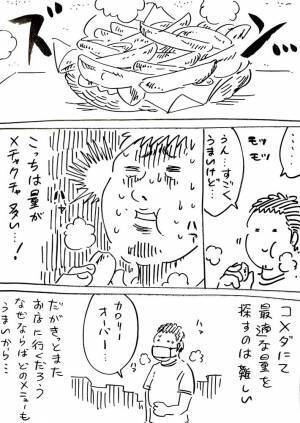 ズ
ン
・・・
モッ
モッ
うん…すごく
うまいけど…
ハァ
ハァ
こっちは量が
メチャクチャ多い…！
コメダにて
最適な量を
探すのは難しい
カロリー
オーバー…
だがきっとまた
おれは行くだろう
なぜならばどのメニューも
うまいから…